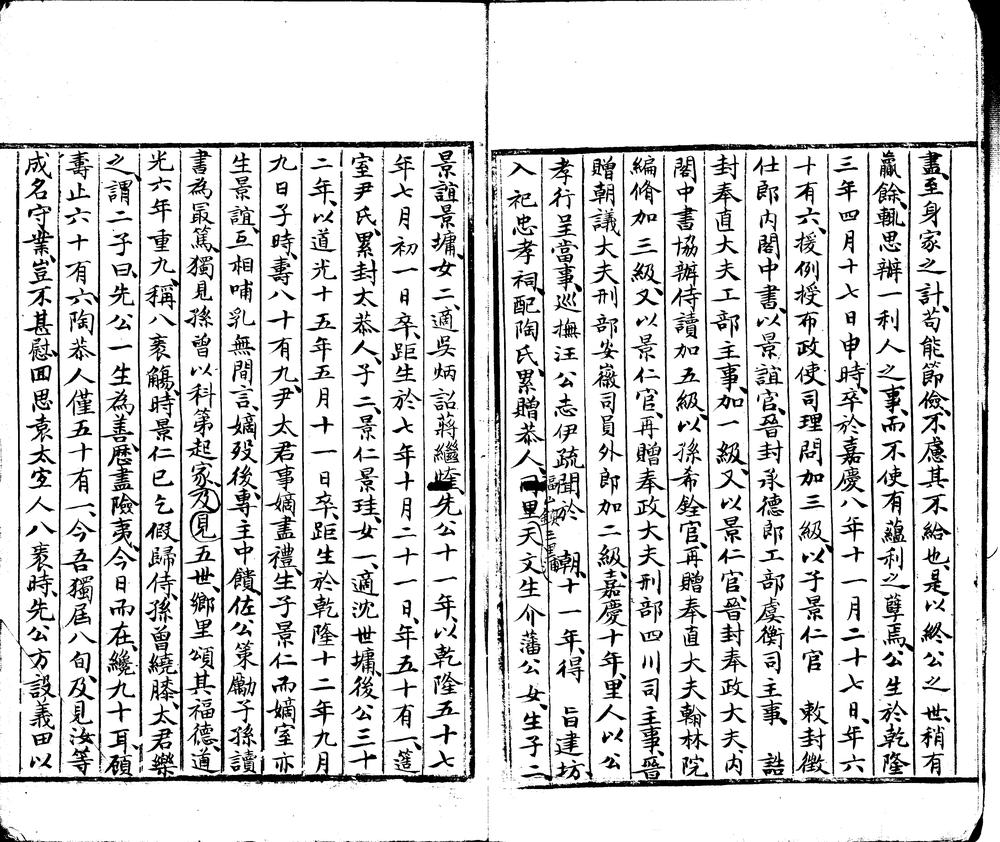 盡至身家之計苟能節儉不慮其不給也是以終公之世稍有
贏餘輒思辦一利人之事而不使有蘊利之孽焉公生於乾隆
三年四月十七日申時卒於嘉慶八年十一月二十七日年六
十有六援例授布政使司理問加三級以子景仁官 敕封徵
仕郎內閣中書以景誼官晉封承德郎工部虞衡司主事 誥
封奉直大夫工部主事加一級又以景仁官晉封奉政大夫內
閣中書協辦侍讀加五級以孫希銓官再贈奉直大夫翰林院
編脩加三級又以景仁官再贈奉政大夫刑部四川司主事晉
贈朝議大夫刑部安徽司員外郎加二級嘉慶十年里人以公
孝行呈當事巡撫汪公志伊疏聞於 朝十一年得 旨建坊
入祀忠孝祠配陶氏累贈恭人里天文生介藩公女生子二
景誼景墉女二適吳炳詔蔣繼先公十一年以乾隆五十七
年七月初一日卒距生於七年十月二十一日年五十有一簉
室尹氏累封太恭人子二景仁景珪女一適沈世墉後公三十
二年以道光十五年五月十一日卒距生於乾隆十二年九月
九日子時壽八十有九尹太君事嫡盡禮生子景仁而嫡室亦
生景誼互相哺乳無間言嫡歿後專主中饋佐公策勵子孫讀
書為最篤獨見孫曾以科第起家及見五世鄉里頌其福德道
光六年重九稱八袠觴時景仁已乞假歸侍孫曾繞膝太君樂
之謂二子曰先公一生為善歷盡險夷今日而在纔九十耳顧
壽止六十有六陶恭人僅五十有一今吾獨屆八旬及見汝等
成名守業豈不甚慰回思袁太安人八袠時先公方設義田以